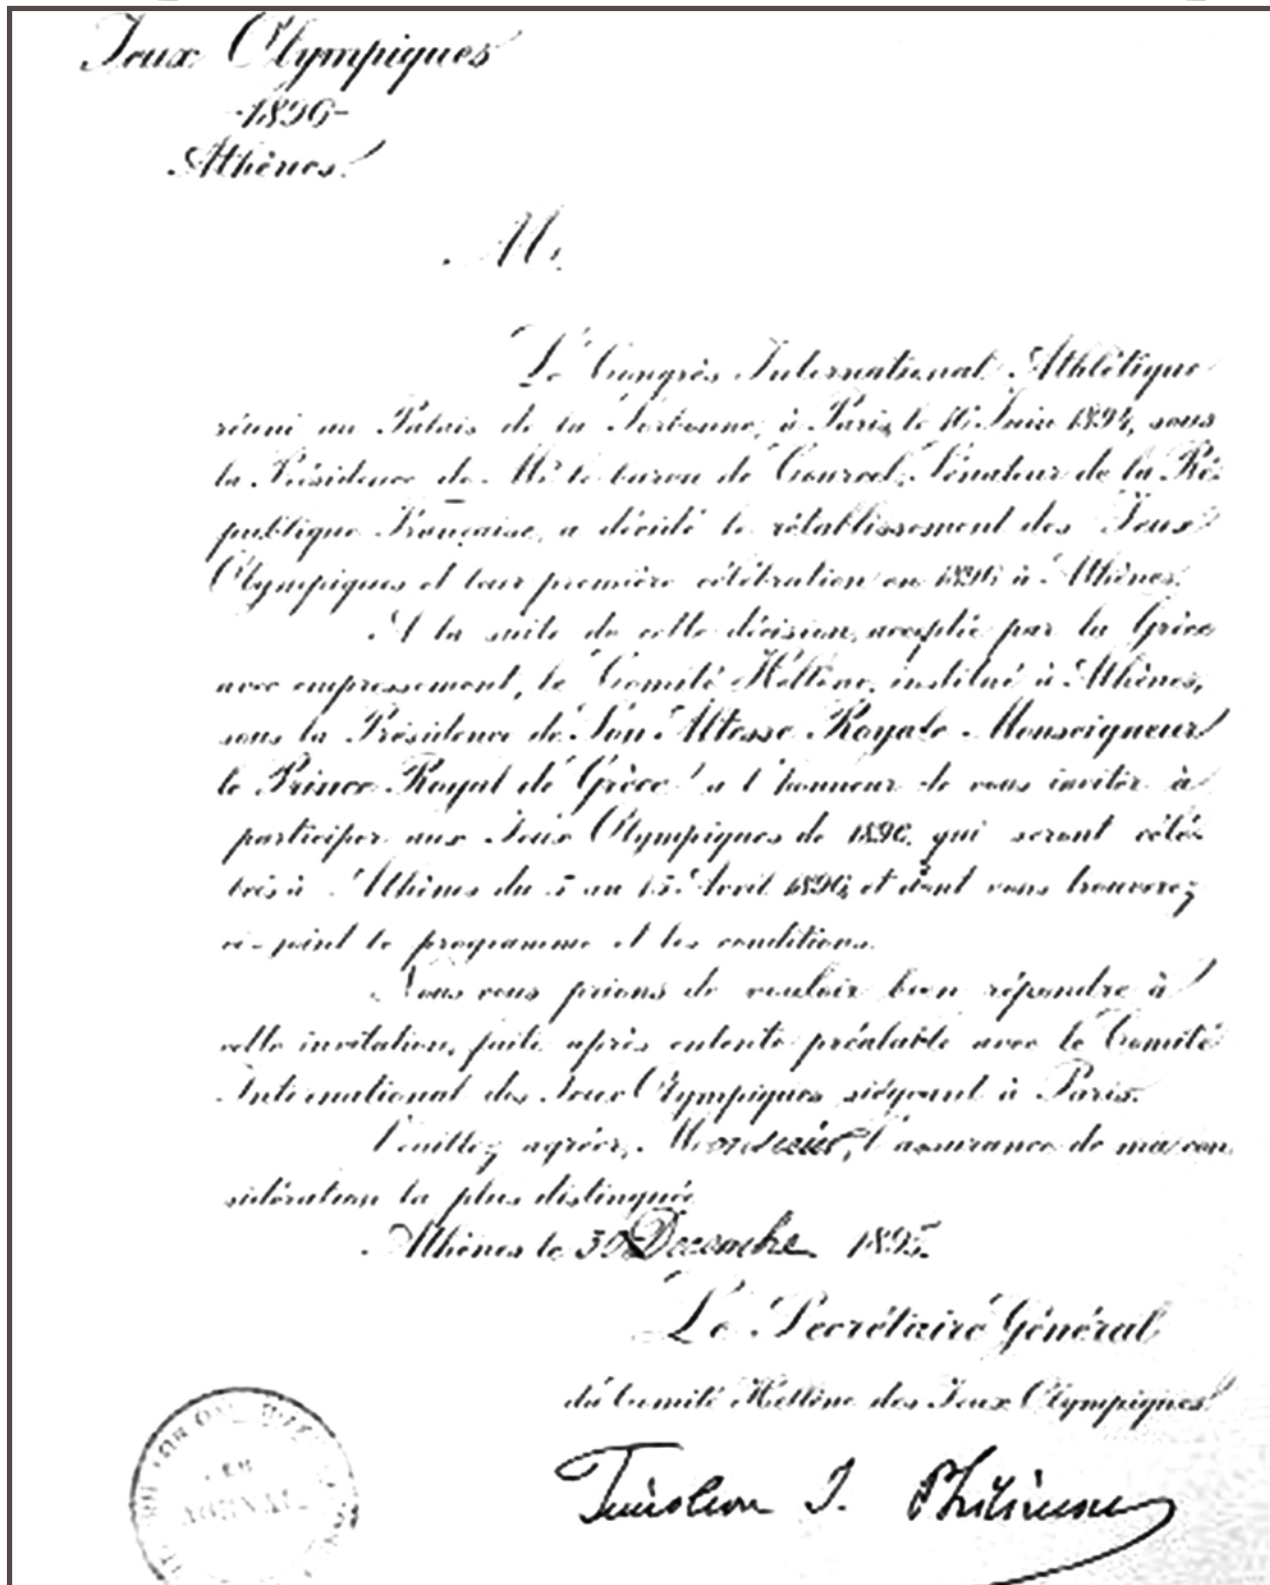 Jeux Olympiques
-1896-
Athènes.
M.
Le Congrès International Athlétique
réuni au Palais de la Sorbonne, à Paris, le 16 Juin 1894, sous
la Présidence de Mr le baron de Courcel, Sénateur de la Ré-
publique Française, a décidé le rétablissement des Jeux
Olympiques et leur première célébration en 1896 à Athènes.
A la suite de cette décision, acceptée par la Grèce
avec empressement, le Comité Hellène, institué à Athènes,
sous la Présidence de Son Altesse Royale Monseigneur
le Prince Royal de Grèce a l'honneur de vous inviter à
participer aux Jeux Olympiques de 1896, qui seront célé-
brés à Athènes du 5 au 15 Avril 1896, et dont vous trouverez
ci-joint le programme et les conditions.
Nous vous prions de vouloir bien répondre à
cette invitation, faite après entente préalable avec le Comité
International des Jeux Olympiques siégeant à Paris.
Veuillez agréer, Monsieur, l'assurance de ma con
sidération la plus distinguée
Athènes le 30 Decembre 1895.
Le Secrétaire Général
du Comité Hellène des Jeux Olympiques
Timoleon J. Philimon
ΕΝ